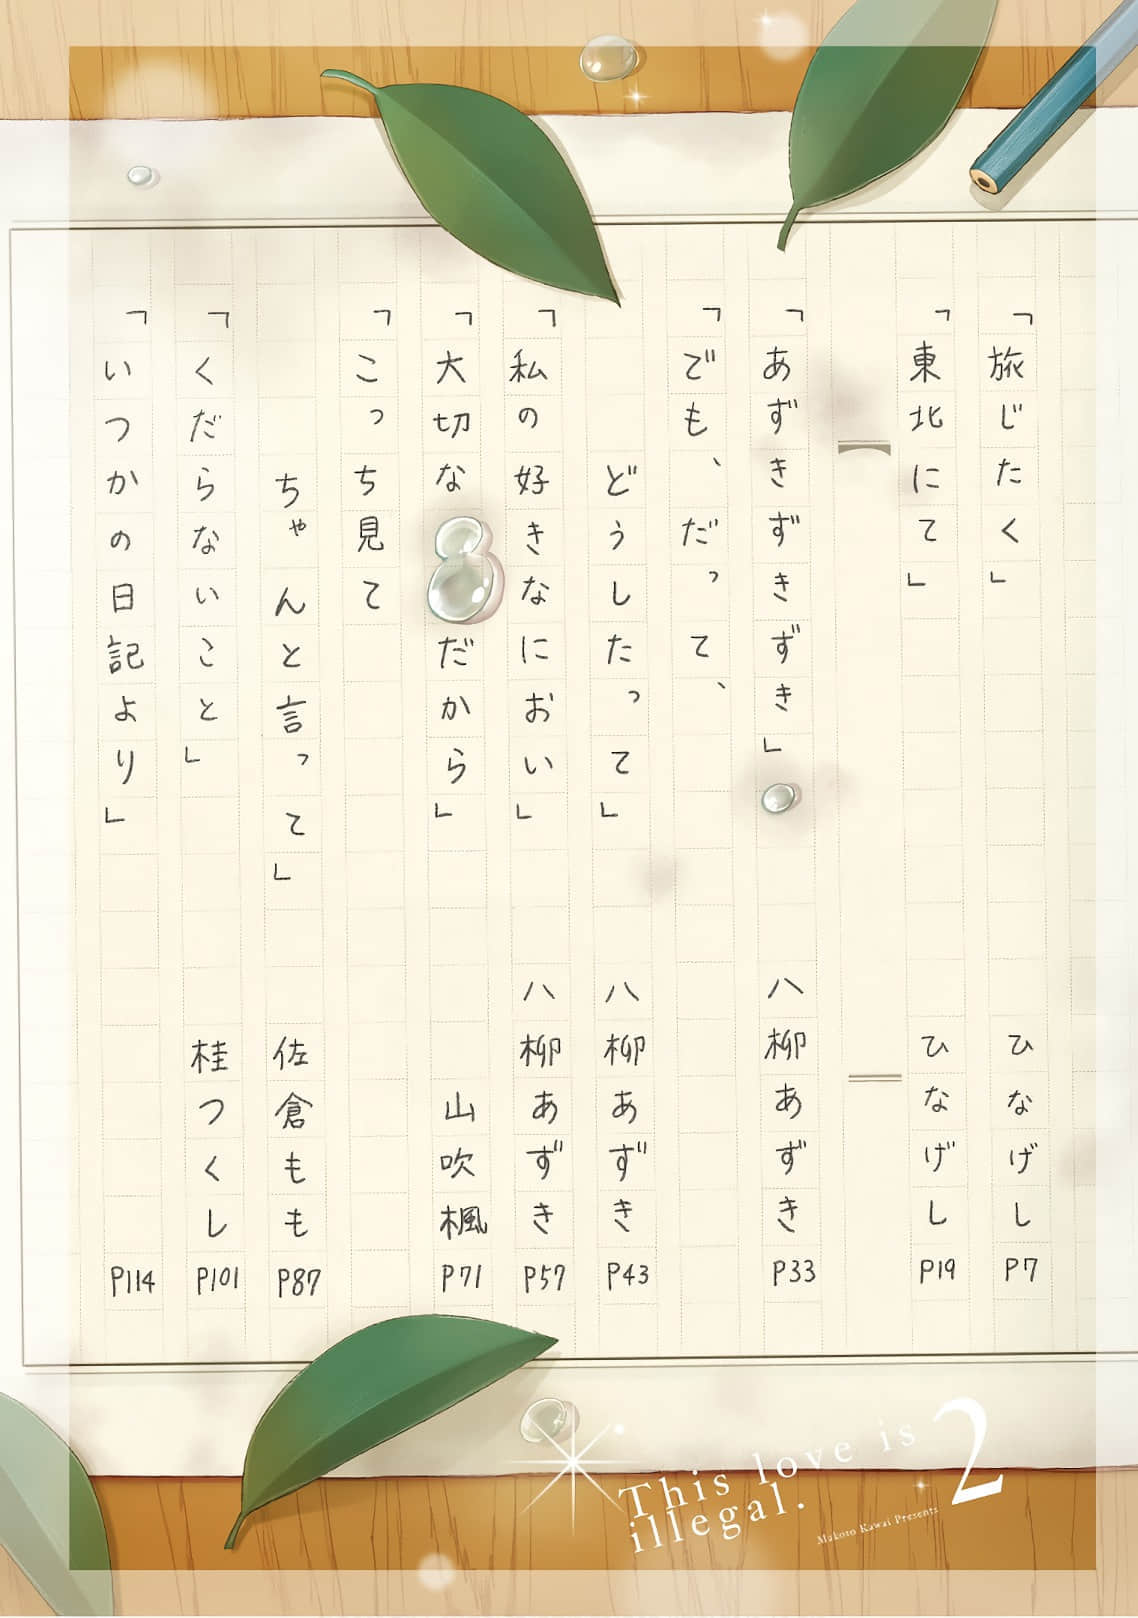 「旅じたく」 ひなげし P7
「東北にて」 ひなげし P19
「あずきずきずきずき」 八柳あずき P33
「でも、だって、
どうしたって」 八柳あずき P43
「私の好きなにおい」 八柳あずき P57
「大切な だから」 山吹楓 P71
「こっち見て
ちゃんと言って」 佐倉もも P87
「くだらないこと」 桂つくし P101
「いつかの日記より」 P114
This love is
illegal.
2
Makoto Kawai Presents